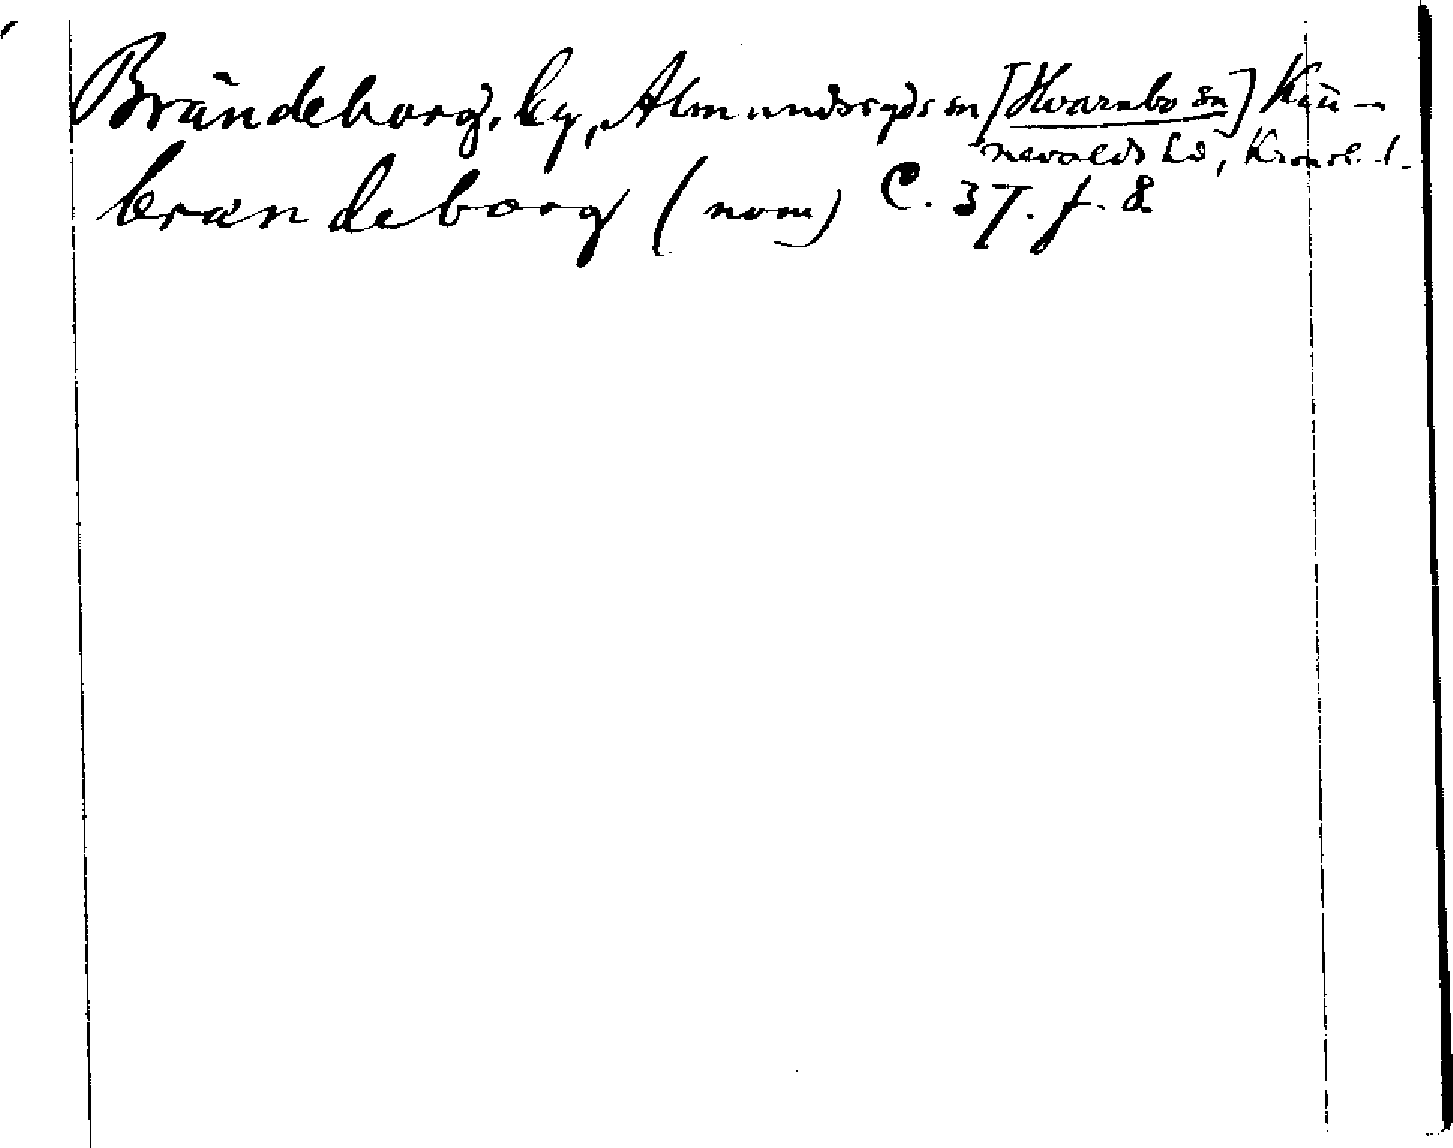 Brändeborg, by, Almundsryds sn [Hvarabo sn] Kin-
nevalds hd, Kronob. l.
brandeborg (nom) C. 37. f. 8